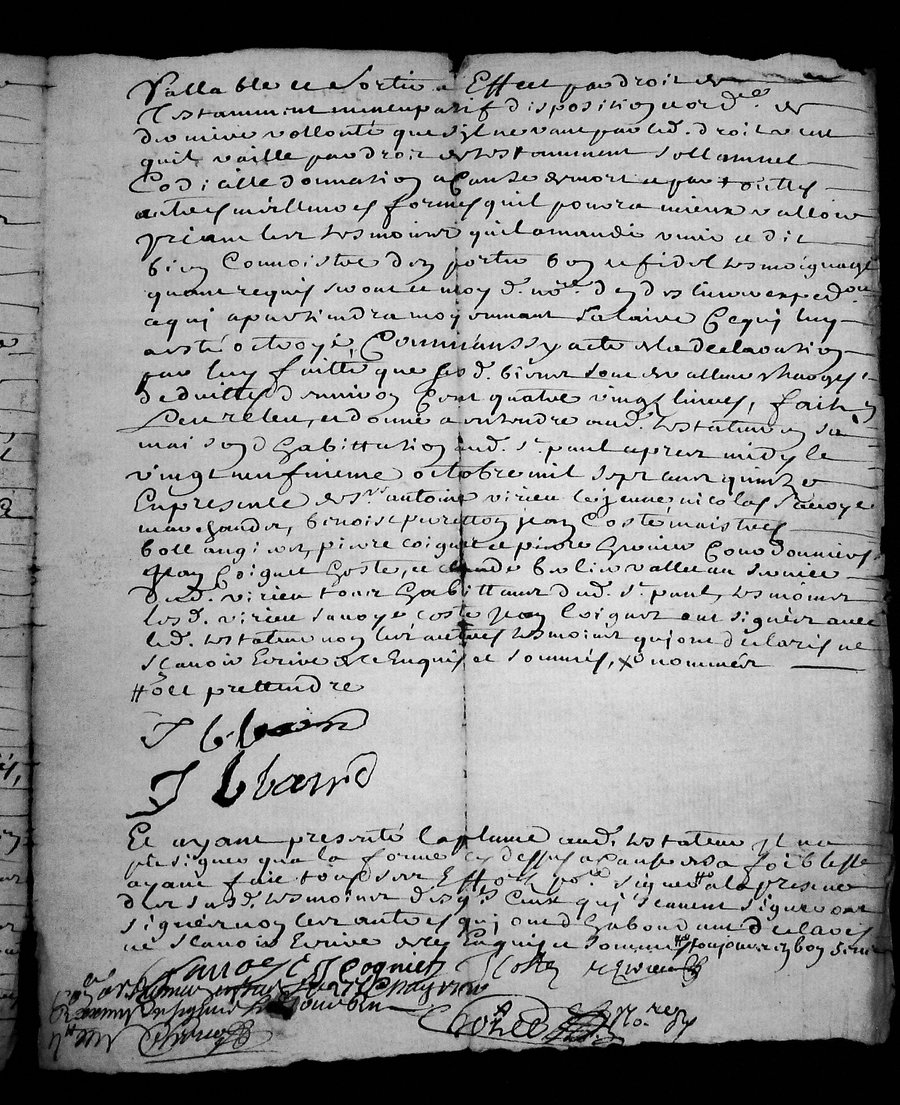 Vallable et sortir a Effect par droit de
Testamment nuncupatif disposition et ord.ce de
derniere vollonté que sy il ne vaut par led. droit veut
quil vaille par droit de testamment sollamnel
Codicille donnation a Cause de mort et par touttes
autres meillures formes quil pourra mieux valloir
priant les tesmoins quil a mandé venir et dit
bien Connoistre d'en porter bon et fidel tesmoignage
quant requis seront et moy d. no.re d'en deslivrer exped.on
a qui apartiendra moyennant salaire Ce qui luy
a esté octroyé, Comme aussy acte de la declaration
par luy faitte que sesd. biens sont de valleur charges
deduittes d'environ Cent quatre vingt livres, fait
leu releu, et donné a entendre aud. testateur en sa
maison d'habittation aud. st. paul apres midy le
vingt neufvieme octobre mil sept cent quinze
En presence de srs antoine virieu le jeune, nicolas savoye
marchands, benoist perretton jean Coste, maistres
bollangiers, pierre Coignet et pierre Cordonniers
Jean Coignet hoste, et claude vallet au service
dud. virieu tous habittans dud. st. paul, tesmoins
lesd. virieu savoye coste jean Coignet ont signés avec
led. testateur non les autres tesmoins qui ont declarés ne
scavoir Ecrire de ce Enquis et sommés,
pretendre
Et ayant presenté la plume aud. testateur il na
peu signer qua la forme cy dessus a Cause de sa foiblesse
ayant fait tous ses Effors po.r signer a la presence
des susd. tesmoins Ceux qui scavent signer ont
signés non les autres qui ont d'habond declarés
ne scavoir Ecrire de ce Enquis et sommés
Coignet J Coste